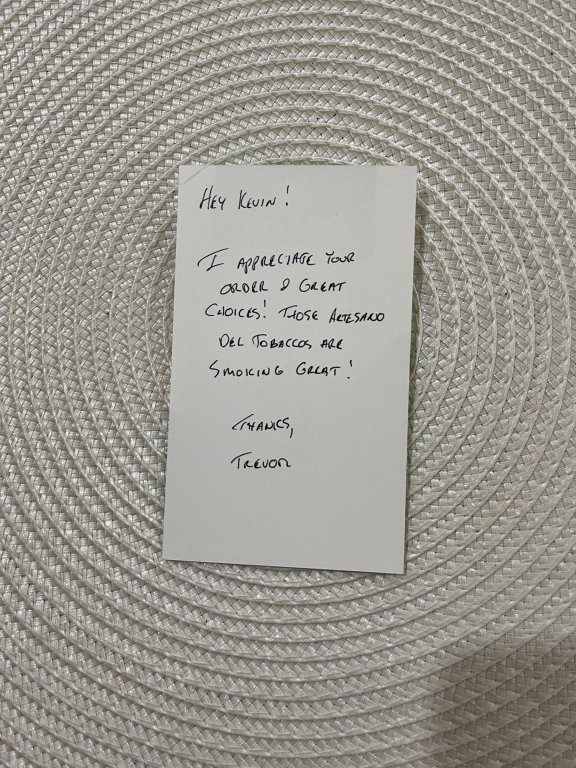 Hey Kevin!
I appreciate your
order & great
choices! Those Artesano
Del Tobaccos are
smoking great!
Thanks,
Trevor